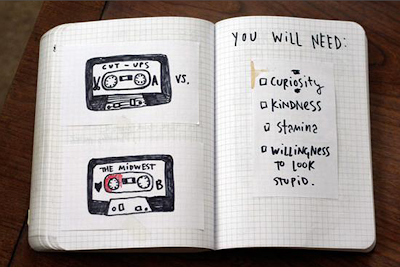 CUT-UPS
A
VS.
THE MIDWEST
B
YOU WILL NEED:
CURIOSITY
KINDNESS
Stamina
WILLINGNESS
TO LOOK
STUPID.